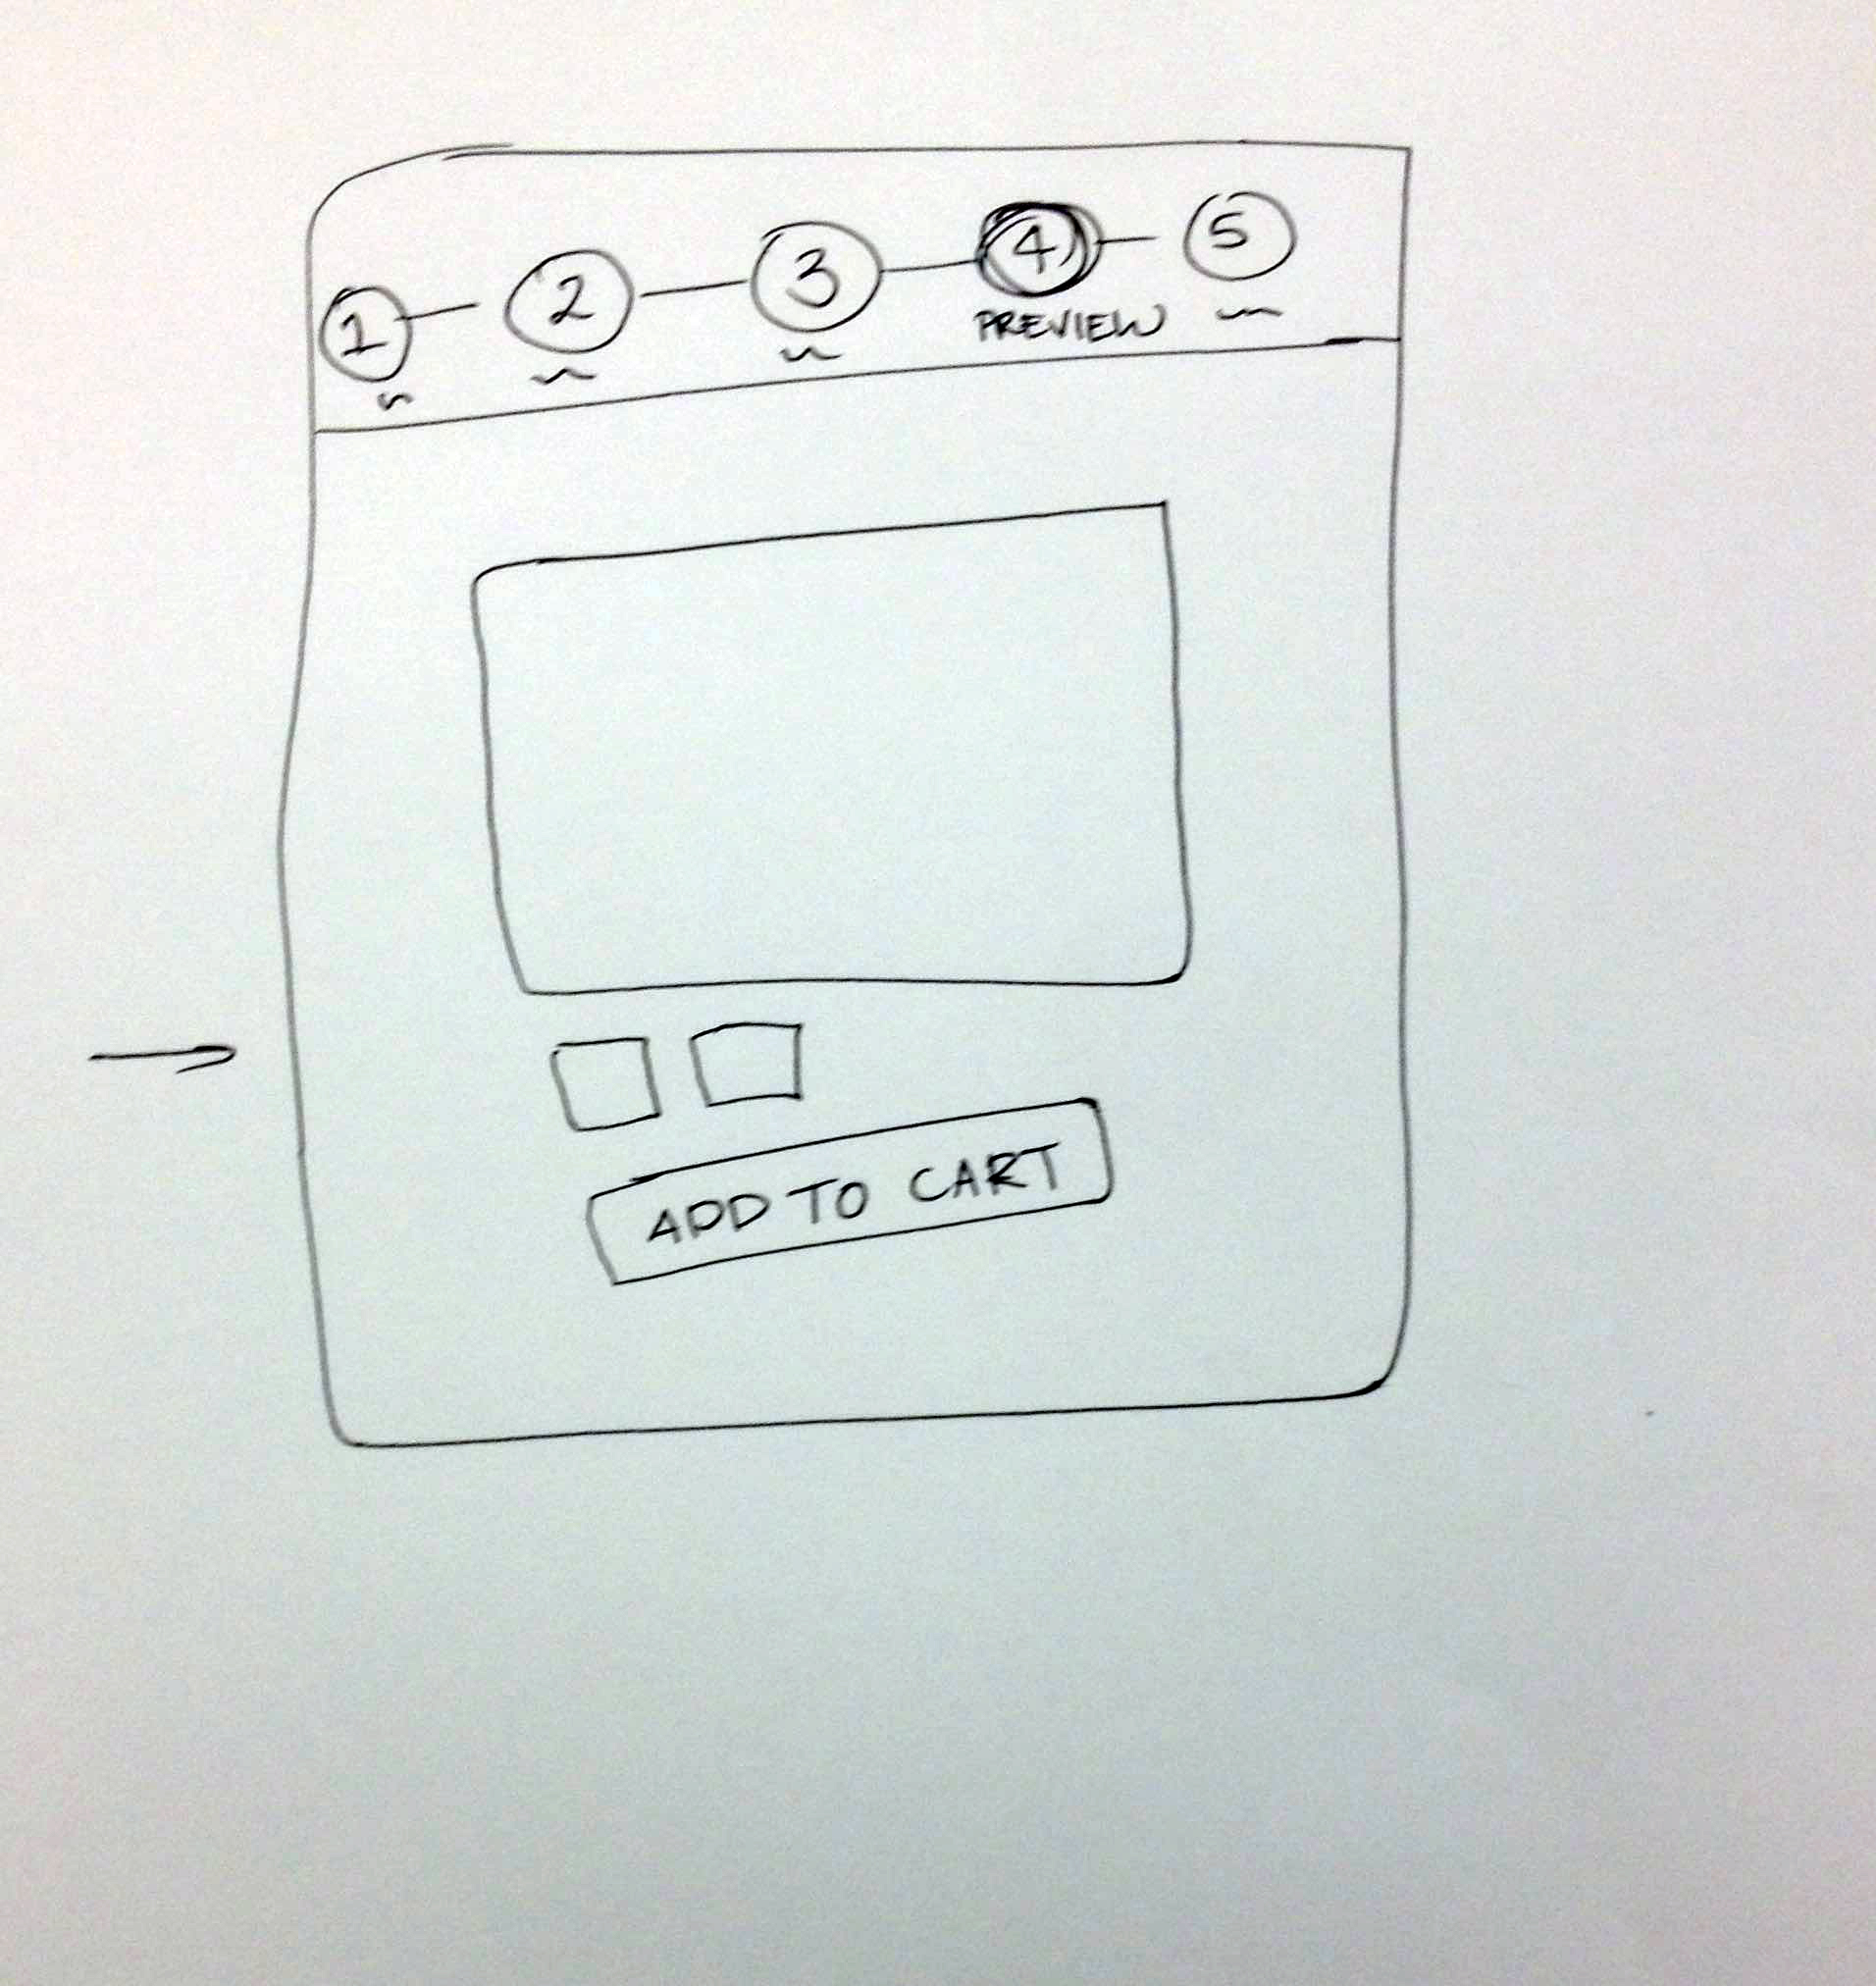 1 2 3 4 5
PREVIEW
ADD TO CART